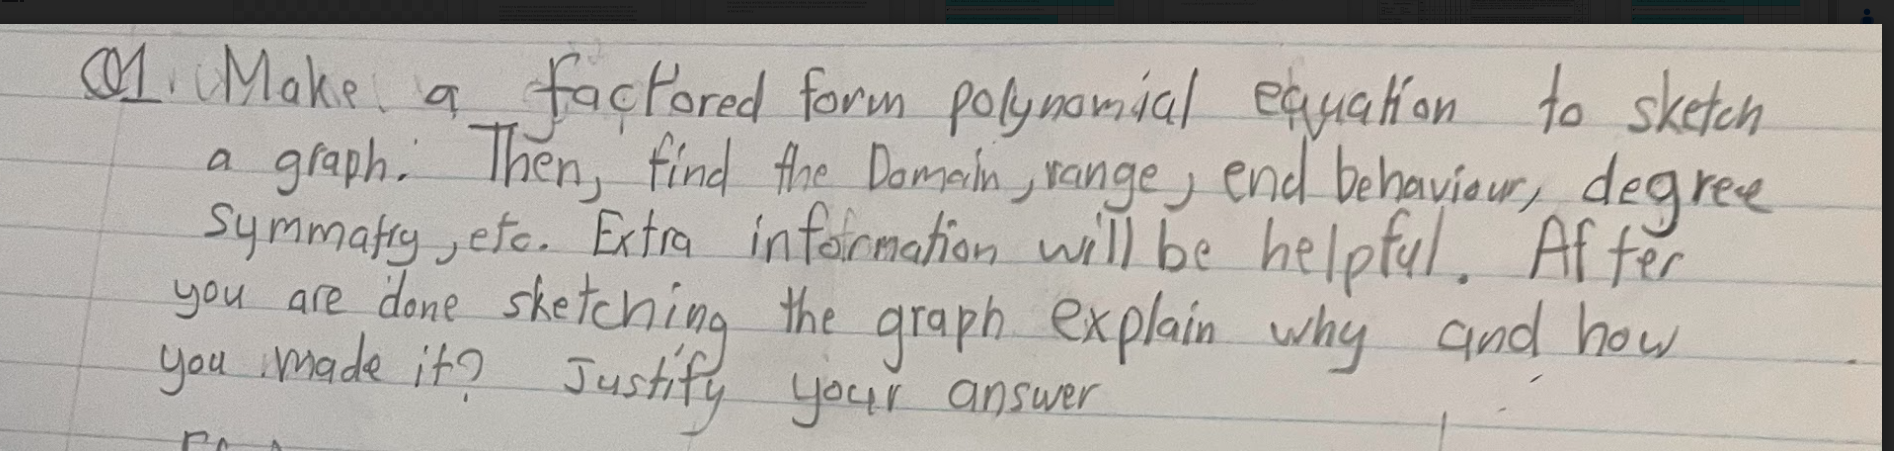 Q1. Make a factored form polynomial equation to sketch
a graph. Then, find the Domain, range, end behaviour, degree
Symmatry, etc. Extra information will be helpful. After
you are done sketching the graph explain why and how
you made it? Justify your answer